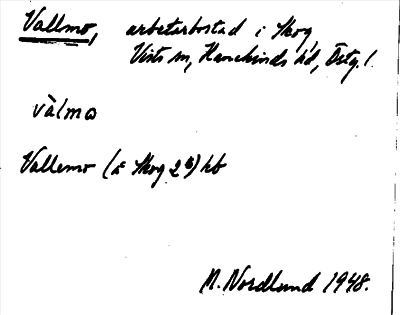 Vallmo, arbetarbostad i Skog,
Vists sn, Hanekinds hd, Östg.l.
vàlmω
Vallemo (å Skog 2 ) kb
M. Nordlund 1948.